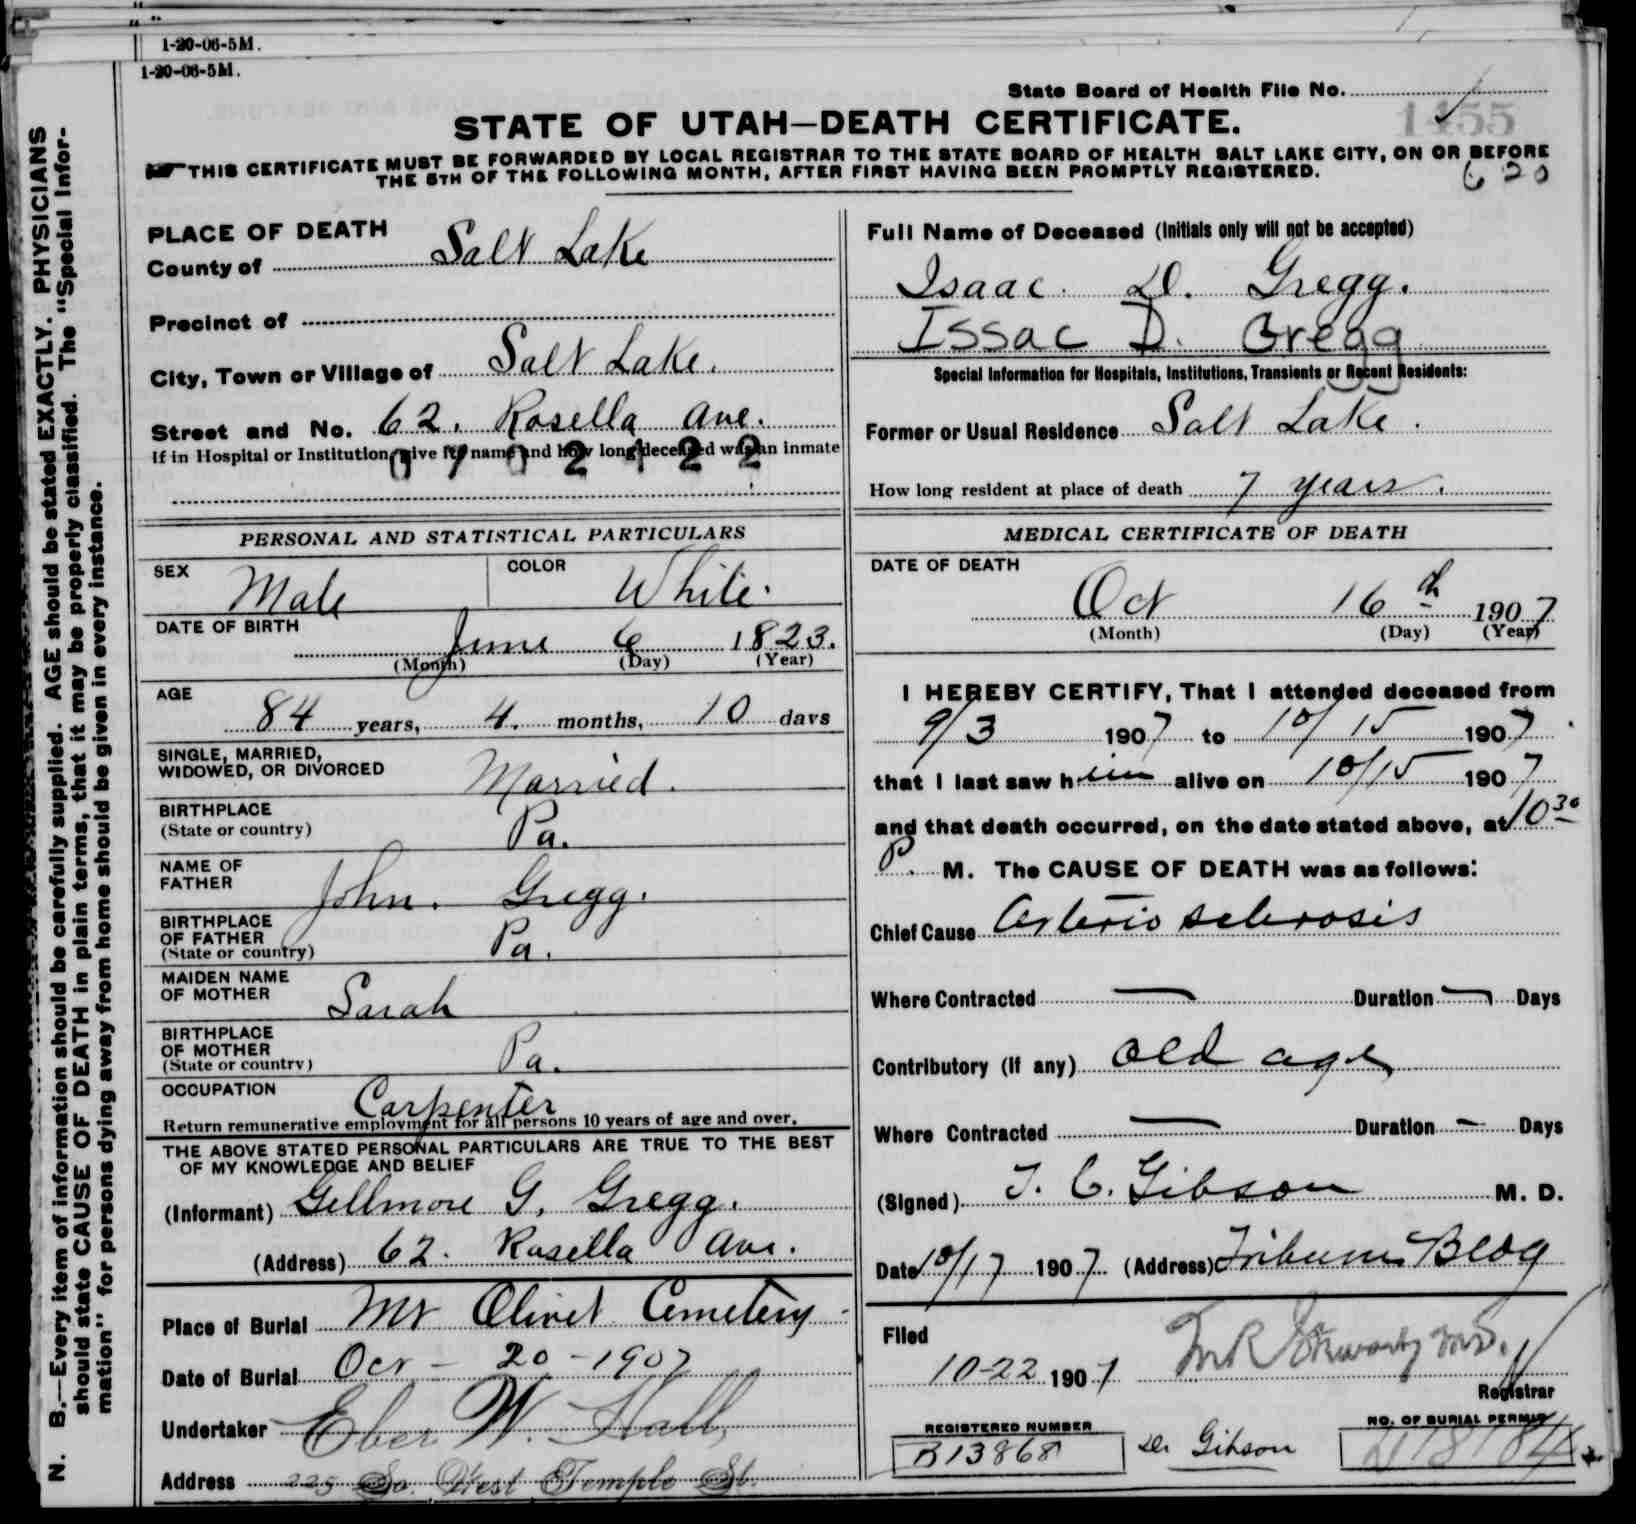 1-20-06-5M.
1-20-06-5M.
State Board of Health File No.
1455
STATE OF UTAH—DEATH CERTIFICATE.
THIS CERTIFICATE MUST BE FORWARDED BY LOCAL REGISTRAR TO THE STATE BOARD OF HEALTH SALT LAKE CITY, ON OR BEFORE
THE 5TH OF THE FOLLOWING MONTH, AFTER FIRST HAVING BEEN PROMPTLY REGISTERED.
620
N. B.—Every item of information should be carefully supplied. AGE should be stated EXACTLY. PHYSICIANS
should state CAUSE OF DEATH in plain terms, that it may be properly classified. The "Special Infor-
mation" for persons dying away from home should be given in every instance.
PLACE OF DEATH
County of Salt Lake
Precinct of
City, Town or Village of Salt Lake.
Street and No. 62. Rosella Ave.
If in Hospital or Institution, give its name and how long deceased was an inmate
PERSONAL AND STATISTICAL PARTICULARS
SEX Male COLOR White.
DATE OF BIRTH June 6 1823.
(Month) (Day) (Year)
AGE
84 years, 4. months, 10 days
SINGLE, MARRIED,
WIDOWED, OR DIVORCED Married.
BIRTHPLACE
(State or country) Pa.
NAME OF
FATHER John. Gregg.
BIRTHPLACE
OF FATHER
(State or country) Pa.
MAIDEN NAME
OF MOTHER Sarah
BIRTHPLACE
OF MOTHER
(State or country) Pa.
OCCUPATION Carpenter
Return remunerative employment for all persons 10 years of age and over.
THE ABOVE STATED PERSONAL PARTICULARS ARE TRUE TO THE BEST
OF MY KNOWLEDGE AND BELIEF
(Informant) Gellmore G. Gregg.
(Address) 62. Rosella Ave.
Place of Burial Mt Olivet Cemetery
Date of Burial Oct - 20 - 1907
Undertaker Eber W. Hall,
Address 225 So. West Temple St.
Full Name of Deceased (Initials only will not be accepted)
Isaac D. Gregg.
Issac D. Gregg
Special Information for Hospitals, Institutions, Transients or Recent Residents:
Former or Usual Residence Salt Lake.
How long resident at place of death 7 years.
MEDICAL CERTIFICATE OF DEATH
DATE OF DEATH
Oct 16th 1907
(Month) (Day) (Year)
I HEREBY CERTIFY, That I attended deceased from
9/3 1907 to 10/15 1907.
that I last saw him alive on 10/15 1907
and that death occurred, on the date stated above, at 10 30
P. M. The CAUSE OF DEATH was as follows:
Chief Cause Arterio sclerosis
Where Contracted — Duration — Days
Contributory (if any) old age
Where Contracted — Duration — Days
(Signed) T. C. Gibson M. D.
Date 10/17 1907. (Address) Tribune Bldg
Filed
10-22 1907
Registrar
REGISTERED NUMBER
B13868
Dr Gibson
NO. OF BURIAL PERMIT